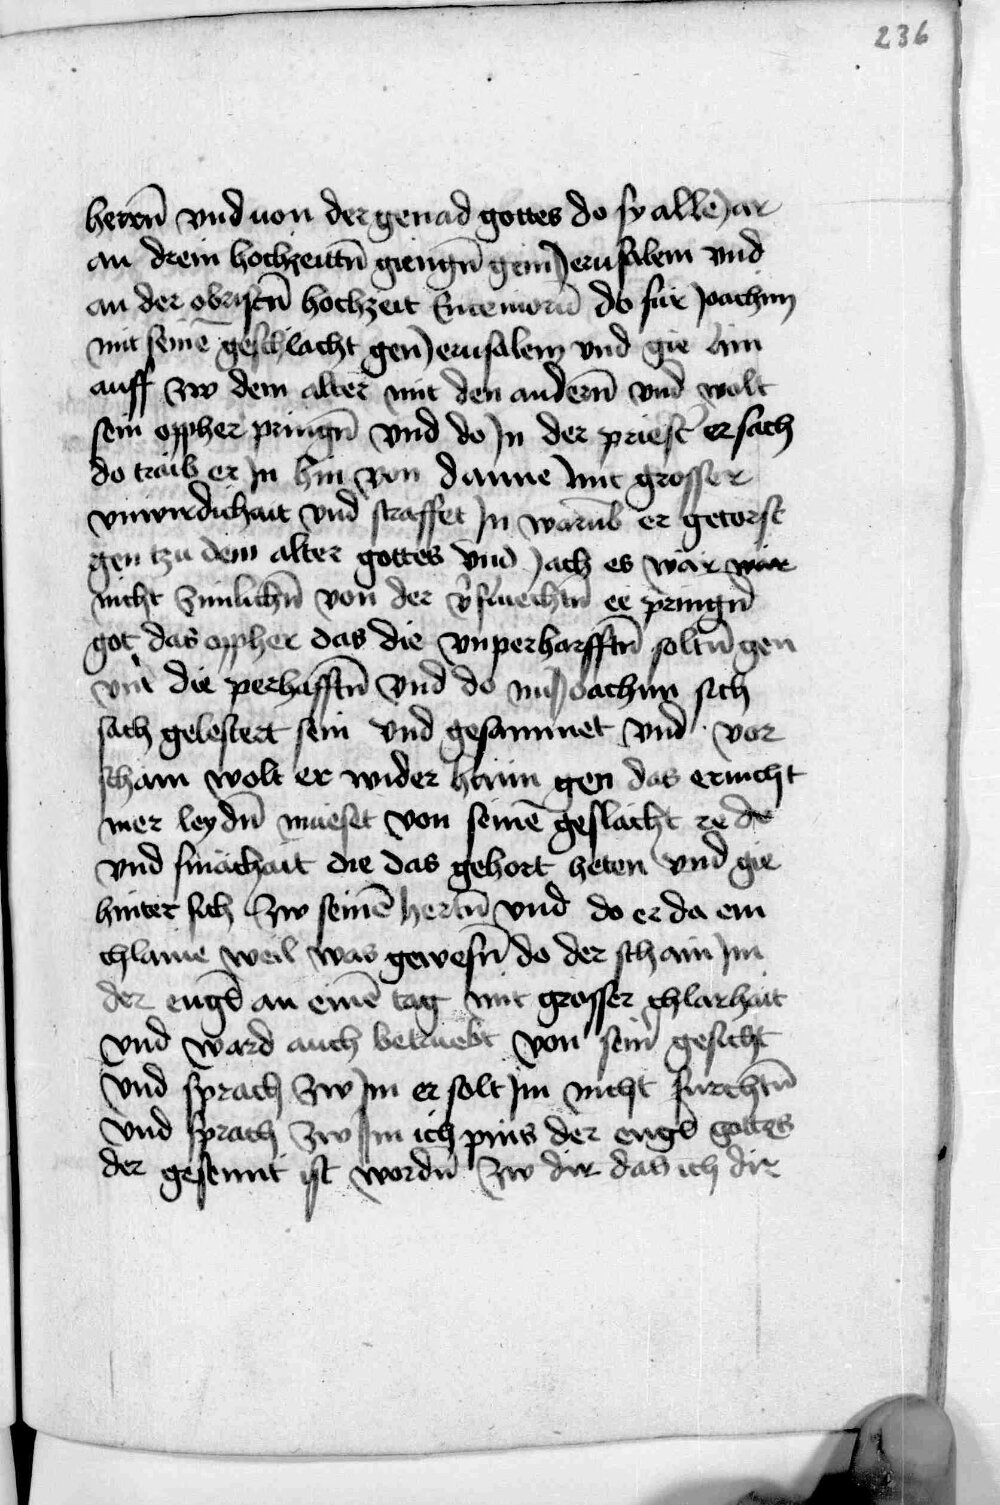 236
herrn̄ vnd uon der genad gottes do sy alle Jar
an drein hochzeittn̄ giengn̄ gein Jerusalem vnd
an der obristn̄ hochzeit Encenioru̅ do fur Joachim
mit seine̅ geschlacht gen Jerusalem vnd gie hin
auff zw dem alter mit den andern̄ vnd wolt
sein oppher pringn̄ vnd do Jn der priest̉ ersach
do traib er Jn hin von danne mit grosser
vnwirdichait vnd straffet Jn waru̅b er getorst
gen tzu dem alter gottes vnd Jach es wär wär
nicht zimlichn̄ von der v̉fluechtn̄ ee pringn̄
got das oppher das die vnperhafftn̄ soltn̄ gen
vnt̉ die perhafftn̄ vnd do nu Joachim sich
sach gelestert sein vnd geschammet vnd vor
scham wolt er wider haim gen das er nicht
mer leydn̄ mueset von seine̅ geslacht rede
vnd smachait die das gehort heten vnd gie
hinter sich zw seine̅ hertn̄ vnd do er da ein
chlaine weil was gewesn̄ do der schain Jm
der engl an eine̅ tag mit grosser chlarhait
vnd ward auch betruebt von sein̉ gesicht
vnd sprach zw Jm er solt Jm nicht furchtn̄
vnd sprach zw Jm ich pins der engl gottes
der gesennt ist wordn̄ zw dir das ich dir